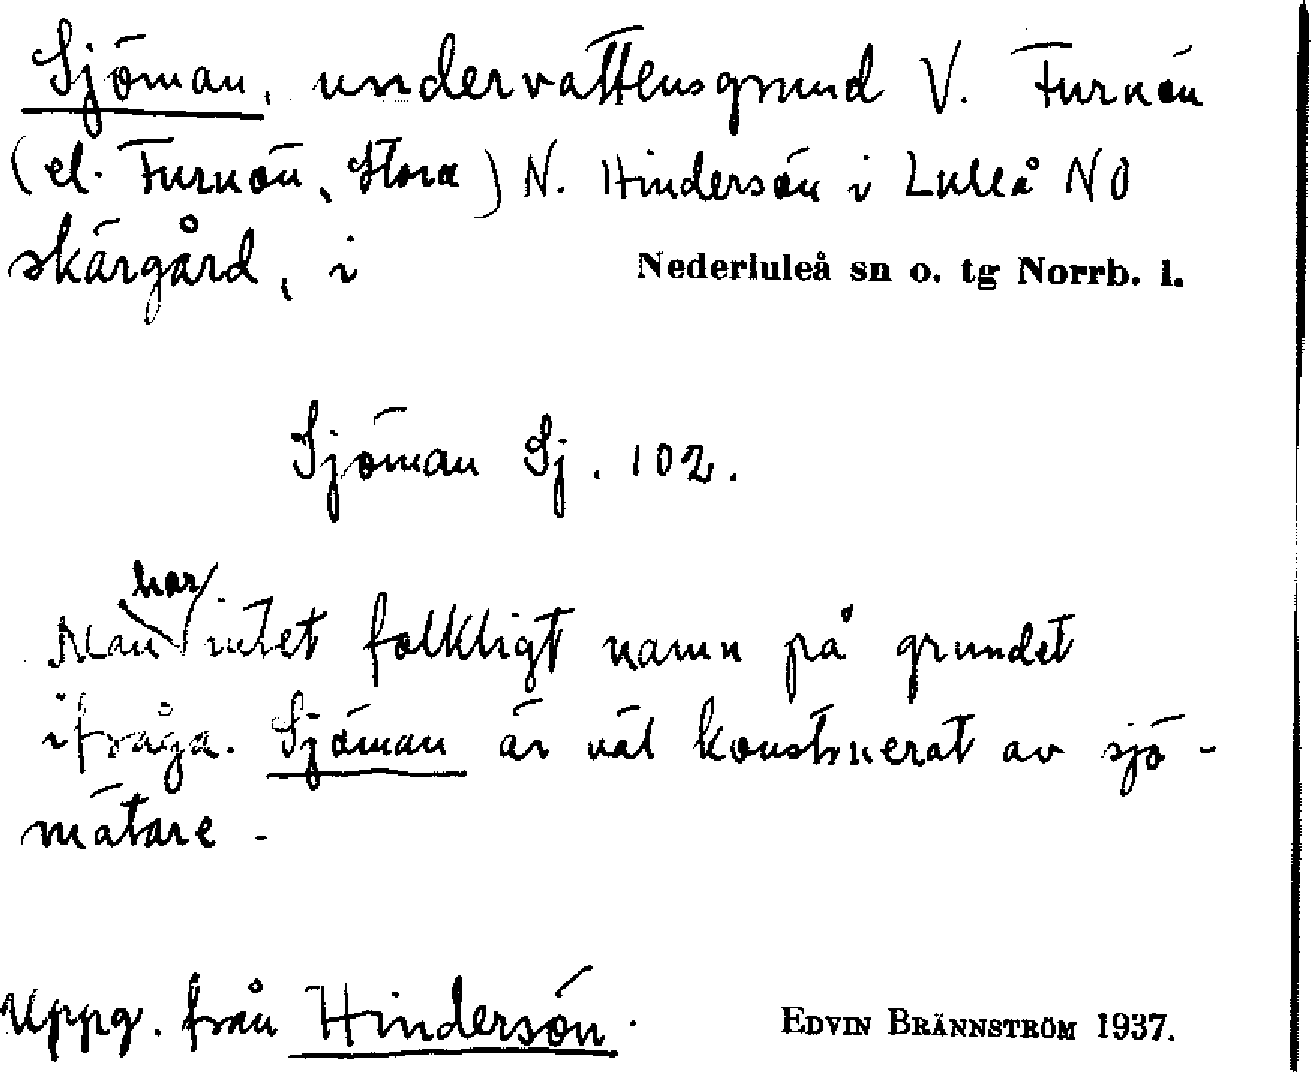 Sjöman, undervattensgrund V. Furuön
(el. Furuön, Stora) N. Hindersön i Luleå NO
skärgård, i Nederluleå sn o. tg Norrb. l.
Sjöman Sj. 102.
Man har intet folkligt namn på grundet
ifråga. Sjöman är väl konstruerat av sjö-
mätare -
Uppg. från Hindersön. EDVIN BRÄNNSTRÖM 1937.